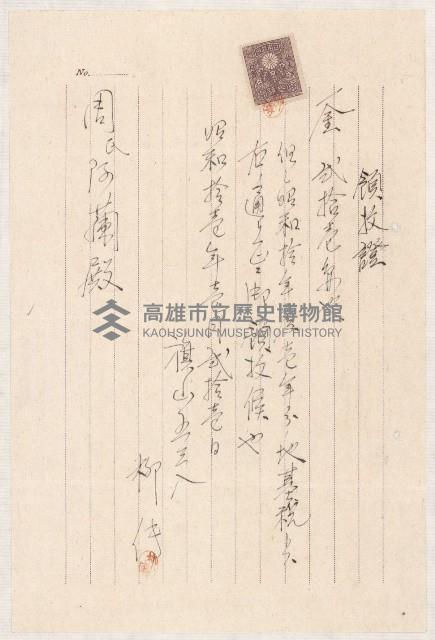 領收證
一金 貳拾壱円也
但シ昭和拾年壱年分地基税
右通正ニ御領收候也
昭和拾壱年壱月貳拾壱日
旗山五三八
柳 传
周氏阿蘭殿
No.
高雄市立歷史博物館
KAOHSIUNG MUSEUM OF HISTORY